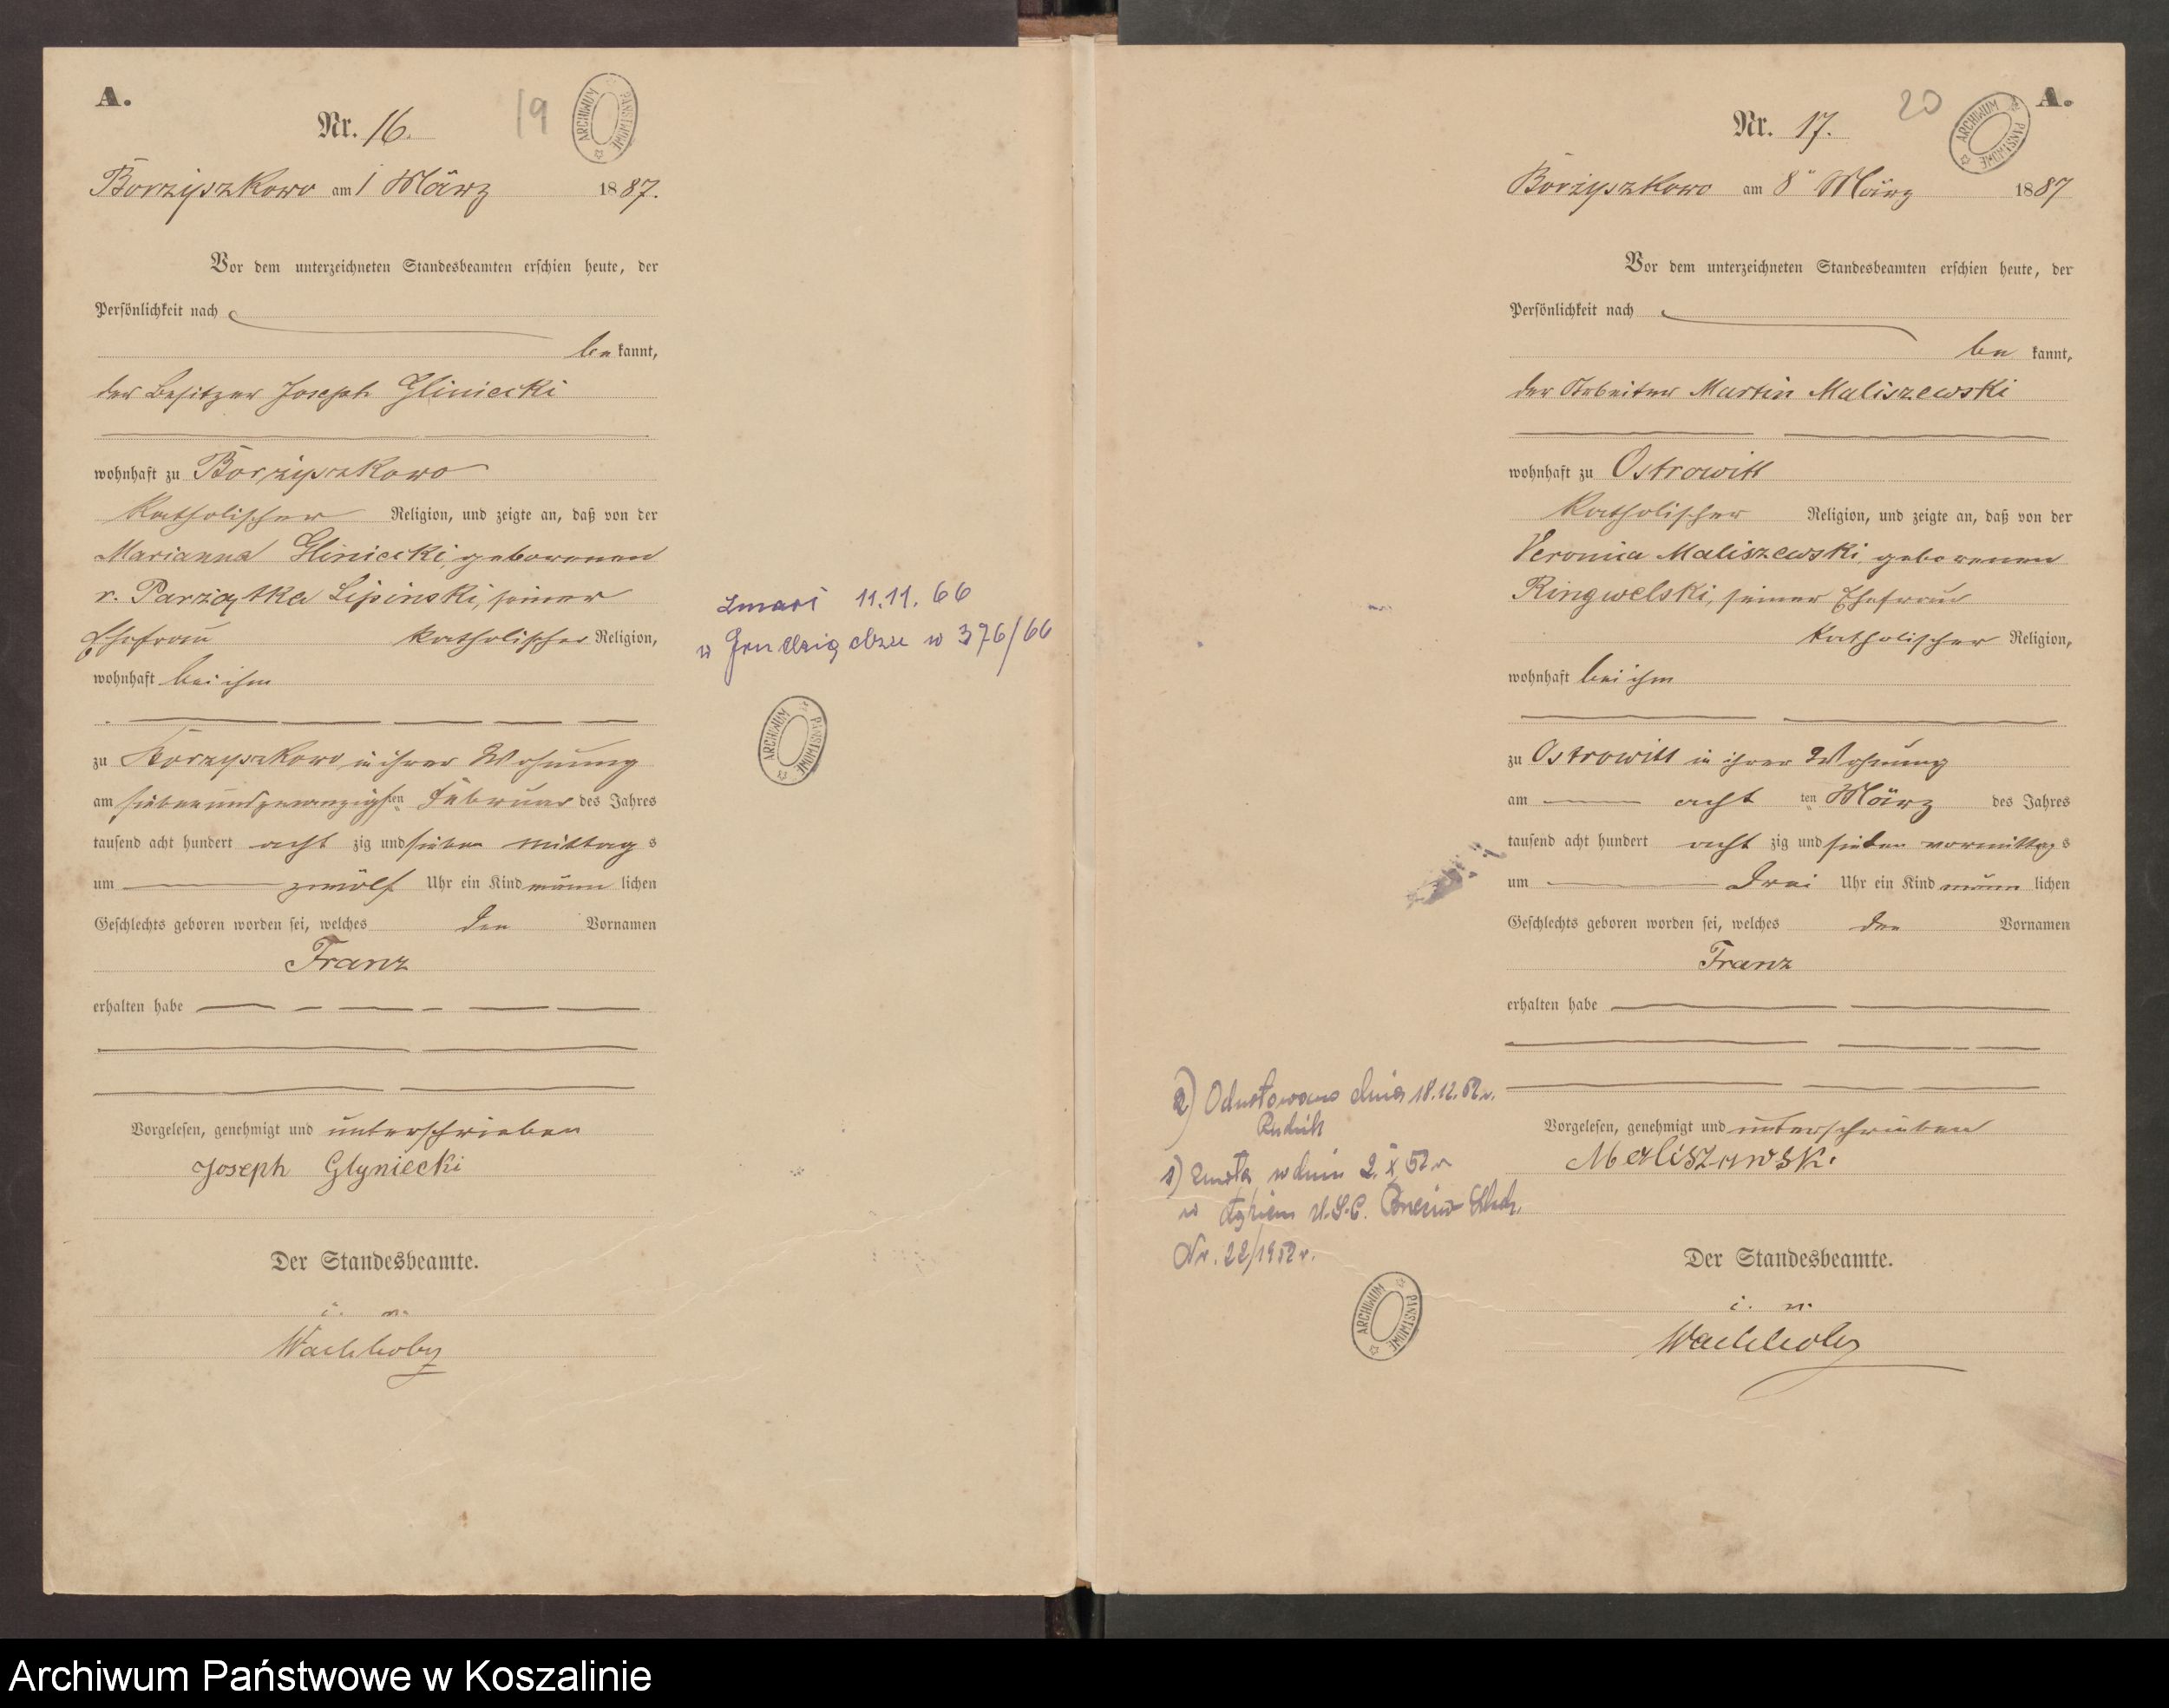 A.
Nr. 16.
19
ARCHIWUM PAŃSTWOWE
Borzyszkowo am 1 März 1887.
Vor dem unterzeichneten Standesbeamten erschien heute, der
Persönlichkeit nach
be kannt,
der Besitzer Joseph Gliniecki
wohnhaft zu Borzyszkowo
katholischer Religion, und zeigte an, daß von der
Marianna Gliniecki, geborenen
v. Parziątka Lipinski, seiner
Ehefrau katholischer Religion,
wohnhaft bei ihm
zu Borzyszkowo in ihrer Wohnung
am siebenundzwanzigsten Februar des Jahres
tausend acht hundert acht zig und sieben mittag s
um zwölf Uhr ein Kind männ lichen
Geschlechts geboren worden sei, welches den Vornamen
Franz
erhalten habe
Vorgelesen, genehmigt und unterschrieben
Joseph Glyniecki
Der Standesbeamte.
i. v.
Wachholz
zmarł 11.11.66
w Grudziądzu w 376/66
ARCHIWUM PAŃSTWOWE
A.
Nr. 17.
20
ARCHIWUM PAŃSTWOWE
Borzyszkowo am 8" März 1887
Vor dem unterzeichneten Standesbeamten erschien heute, der
Persönlichkeit nach
be kannt,
der Arbeiter Martin Maliszewski
wohnhaft zu Ostrowitt
katholischer Religion, und zeigte an, daß von der
Veronica Maliszewski, geborenen
Ringwelski, seiner Ehefrau
katholischer Religion,
wohnhaft bei ihm
zu Ostrowitt in ihrer Wohnung
am acht ten März des Jahres
tausend acht hundert acht zig und sieben vormittag s
um drei Uhr ein Kind männ lichen
Geschlechts geboren worden sei, welches den Vornamen
Franz
erhalten habe
Vorgelesen, genehmigt und unterschrieben
Maliszewski
Der Standesbeamte.
i. v.
Wachholz
2) Odnotowano dnia 18.12.52 r.
1) w dniu 2. X 52 r
w U.S.C.
Nr. 22/1952 r.
ARCHIWUM PAŃSTWOWE
Archiwum Państwowe w Koszalinie